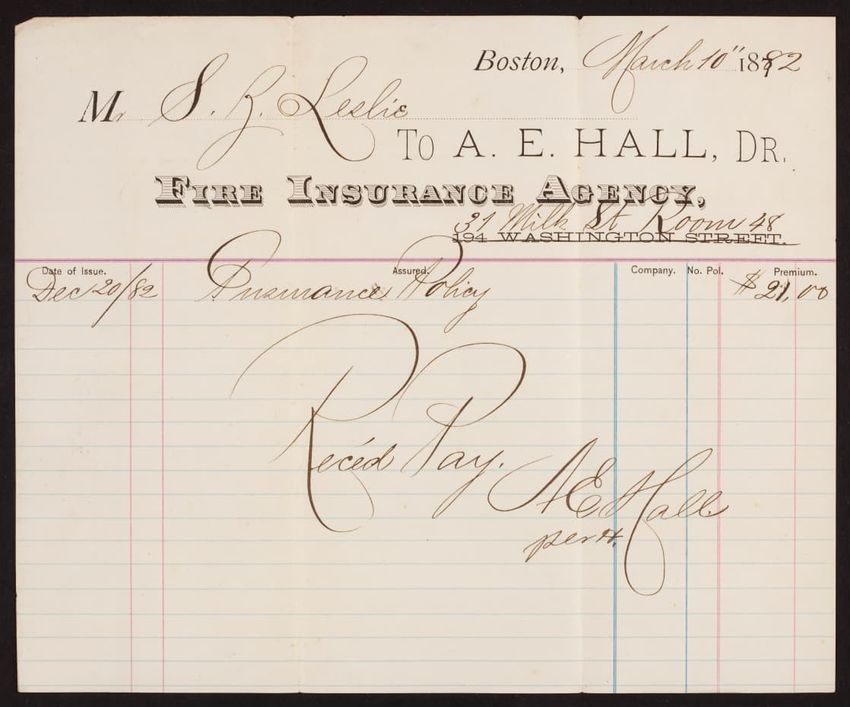 Boston, March 10" 1882
Mr S. R. Leslie
To A. E. HALL, DR.
FIRE INSURANCE AGENCY,
31 Milk St Room 48
194 WASHINGTON STREET.
Date of Issue. Assured. Company. No. Pol. Premium.
Dec 20/82 Insurance Policy $ 21,00
Rec'ed Pay.
A E Hall
per H.